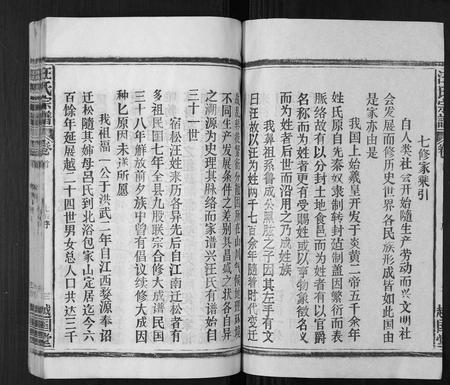 汪氏宗譜
七修家乘引
自人类社会开始隨生产劳动而兴文明社
会发展而修历史世界各民族形成皆如此国由
是家亦由是
我国上始羲皇开发于炎黄二帝五千余年
姓氏原自无秦奴隶制转封建制盖因繁衍而表
脉络故有以分封土地食邑而为姓者有以官爵
名称而为姓者更有受賜姓或以事物象徵名义
而为姓者再世而沿用之乃成姓族
我鼻祖系魯成公黑肱之子因其左手有文
曰汪故以汪为姓両千七百余年隨着时代变迁
不同生产发展条件之差別其昌盛之狀各自异
之溯源为史理其脉络而家谱兴汪氏有谱始自
三十一世
宿松汪姓来历各异先后自江南迁松者有
多祖民国七年全县九股联宗合修大成谱民国
三十八年解放前夕族中曾有倡议续修大成因
种匕原因未遂所愿
我祖福一公于洪武二年自江西婺源奉诏
迁松隨其姉母呂氏到北浴包家山定居迄今六
百餘年延展越二十四世男女总人口共达三千
汪氏宗譜
越国堂